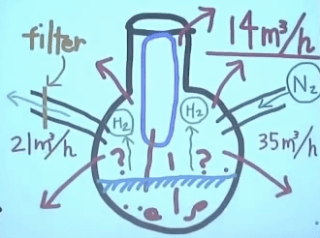 filter
14m³/h
N₂
H₂
H₂
21m³/h
35m³/h
? ?